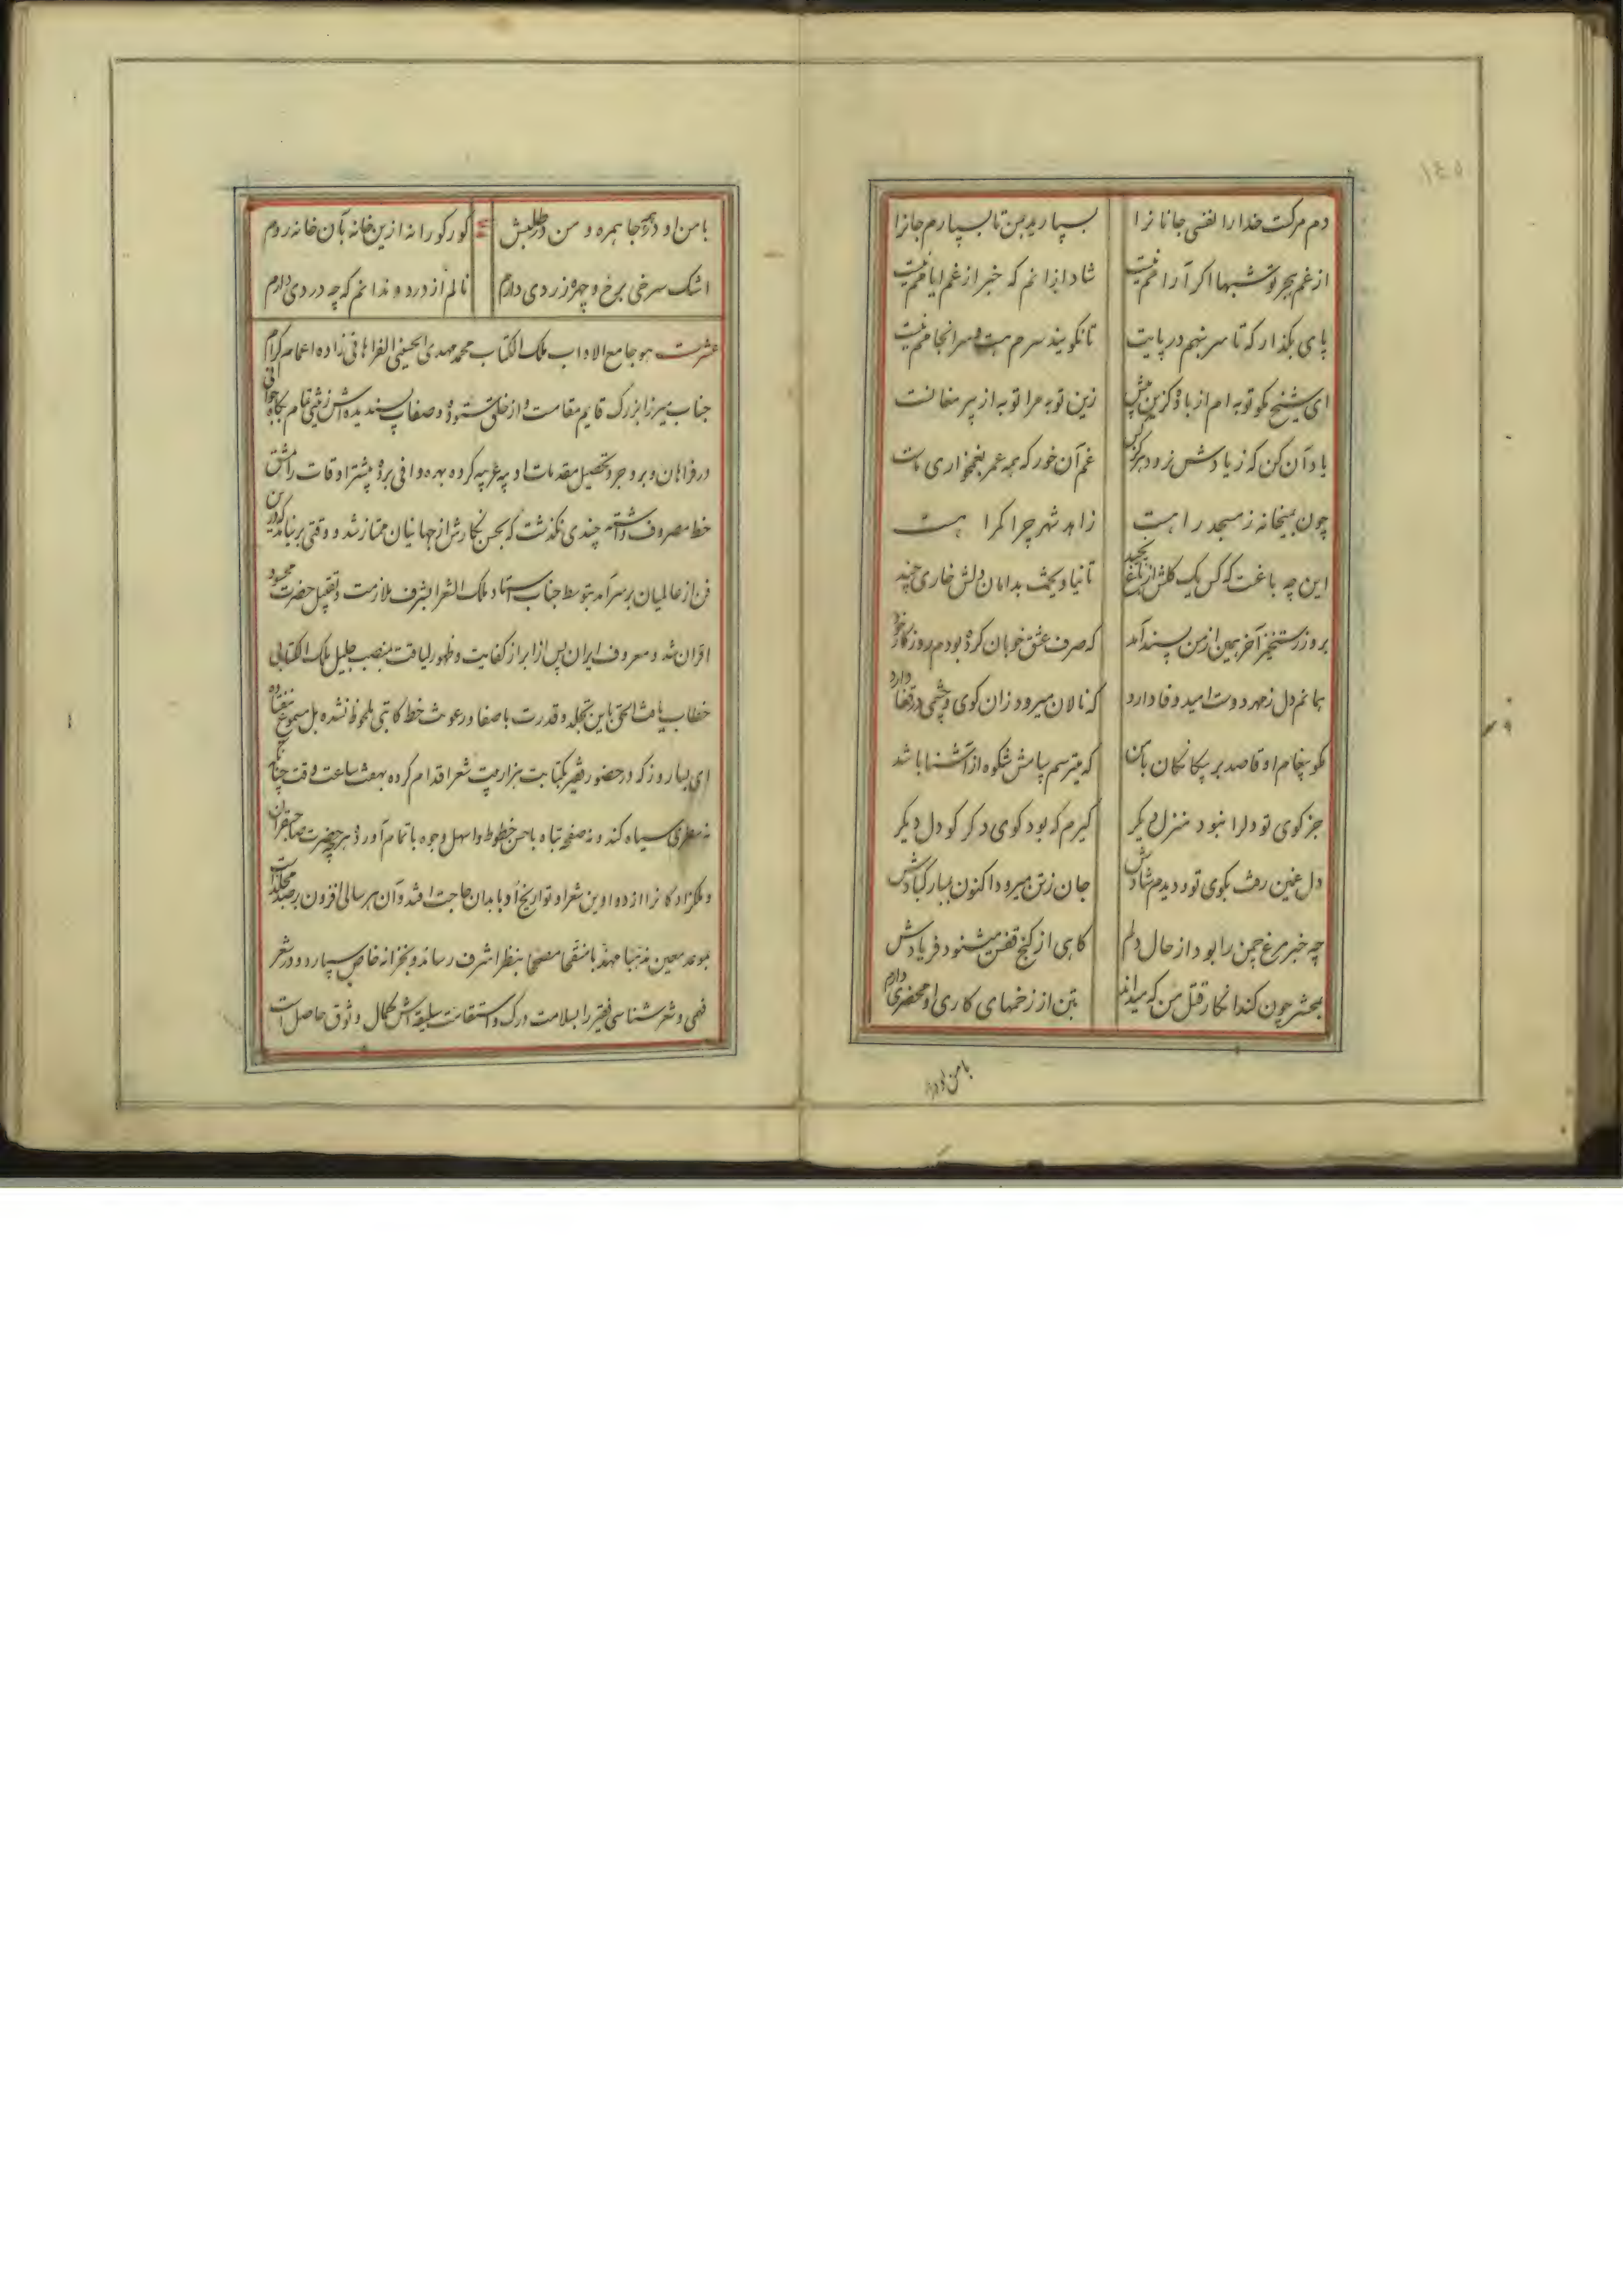 ١٤٥
دم مرکت خدا را نفسی جانانرا بسپارید بمن تا بسپارم جانرا
از غم هجر تو شبها اکر آرامم نیست شاد ازانم که خبر از غم ایامم نیست
پای بگذار که تا سر بنهم در پایت تا نکویند سرم هست و سرانجامم نیست
ای شیخ مکو توبه ام از باده کزین پیش زین توبه مرا توبه از پیر مغانست
یاد آن کن که ز یادش نرود هرکز کس غم آن خور که همه عمر بغمخواری ماست
چون بمیخانه ز مسجد راهست زاهد شهر چرا کمراهست
این چه باغست که کس یک کلش از شاخ نچید تا نیاویخت بدامان دلش خاری چند
بروز رستخیز آخر همین از من پسند آمد که صرف عشق خوبان کرده بودم روزکار خود
بمانم دل ز مهر دوست امید وفا دارد که نالان میرود زان کوی و چشمی در قفا دارد
مکو پیغام او قاصد بر بیکانکان با من که میترسم پیامش شکوه از آشنا باشد
جز کوی تو دلرا نبود منزل دیکر کیرم که بود کوی دکر کو دل دیکر
دل غمین رفت بکوی تو و دیدم شادش جان ز تن میرود اکنون مبارکبادش
چه خبر مرغ چمن را بود از حال دلم کاهی از کنج قفس میشنود فریادش
بمحشر چون کند انکار قتل من که میدانم بتن از زخمهای کاری او محضری دارم
با من او در
با من او در همه جا همره و من در طلبش کور کورانه ازین خانه بآن خانه روم
اشک سرخی برخ و چهره زردی دارم نالم از درد و ندانم که چه دردی دارم
عشرت هو جامع الاداب ملک الکتاب محمد مهدی الحسینی الفراهانی زاده اعمام کرام
جناب میرزا بزرک قایم مقامست و از خلق ستوده و صفات پسندیده اش بکاه جوانی
در فراهان و بروجرد تحصیل مقدمات ادبیه عربیه کرده بهره وافی برد و بیشتر اوقات را بمشق
خط مصروف داشته چندی نکذشت که بحسن نکارش از جهانیان ممتاز شد و وقتی برنیامد که درین
فن از عالمیان بر سر آمد بتوسط جناب استاد ملک الشعرا بشرف ملازمت و تقبیل حضرت محسود
اقران شد و معروف ایران پس از ابراز کفایت و ظهور لیاقت بمنصب جلیل ملک الکتابی
خطاب یافت الحق باین عجله و قدرت با صفا و رعونت خط کاتبی ملحوظ نشده بل مسموع نیفتاده
ای بسا روز که در حضور فقیر بکتابت هزار بیت شعر اقدام کرده بهفت ساعت وقت چنانکه
نه سطری سیاه کند و نه صفحه تباه باحسن خطوط و اسهل وجوه باتمام آورد هر چه حضرت صاحبقران
و ملکزادکانرا از دواوین شعرا و تواریخ ادبا بدان حاجت افتد و آن هر سالی افزون بر صد مجلدات
بموعد معین مذهبا مهذبا منقحا مصححا بنظر اشرف رساند و بخزانه خاص سپارد و در شعر
فهمی و شعر شناسی فقیر را بسلامت درک و استقامت سلیقه اش کمال وثوق حاصل است